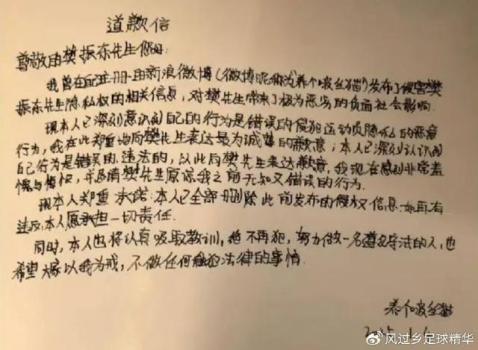 道歉信
尊敬的樊振东先生你好:
我曾在注册的新浪微博(微博昵称为养个波丝猫)发布了侵害樊
振东先生隐私权的相关信息,对樊先生带来了极为恶劣的负面社会影响。
现本人已深刻意识到自己的行为是错误的侵犯运动员隐私的恶意
行为,我在此郑重的向樊先生表达最为诚挚的歉意;本人已深刻认识到
自己行为是错误的、违法的,以此向樊先生表达歉意,我现在感到非常羞
愧与,并恳请樊先生原谅我之前无知又错误的行为。
现本人郑重承诺:本人已全部删除此前发布的侵权信息,如再有
违反本人愿承担一切责任。
同时,本人也将认真吸取教训,绝不再犯,努力做一名遵纪守法的人,也
希望大家以我为戒,不做任何触犯法律的事情。
养个波丝猫
风过乡足球精华